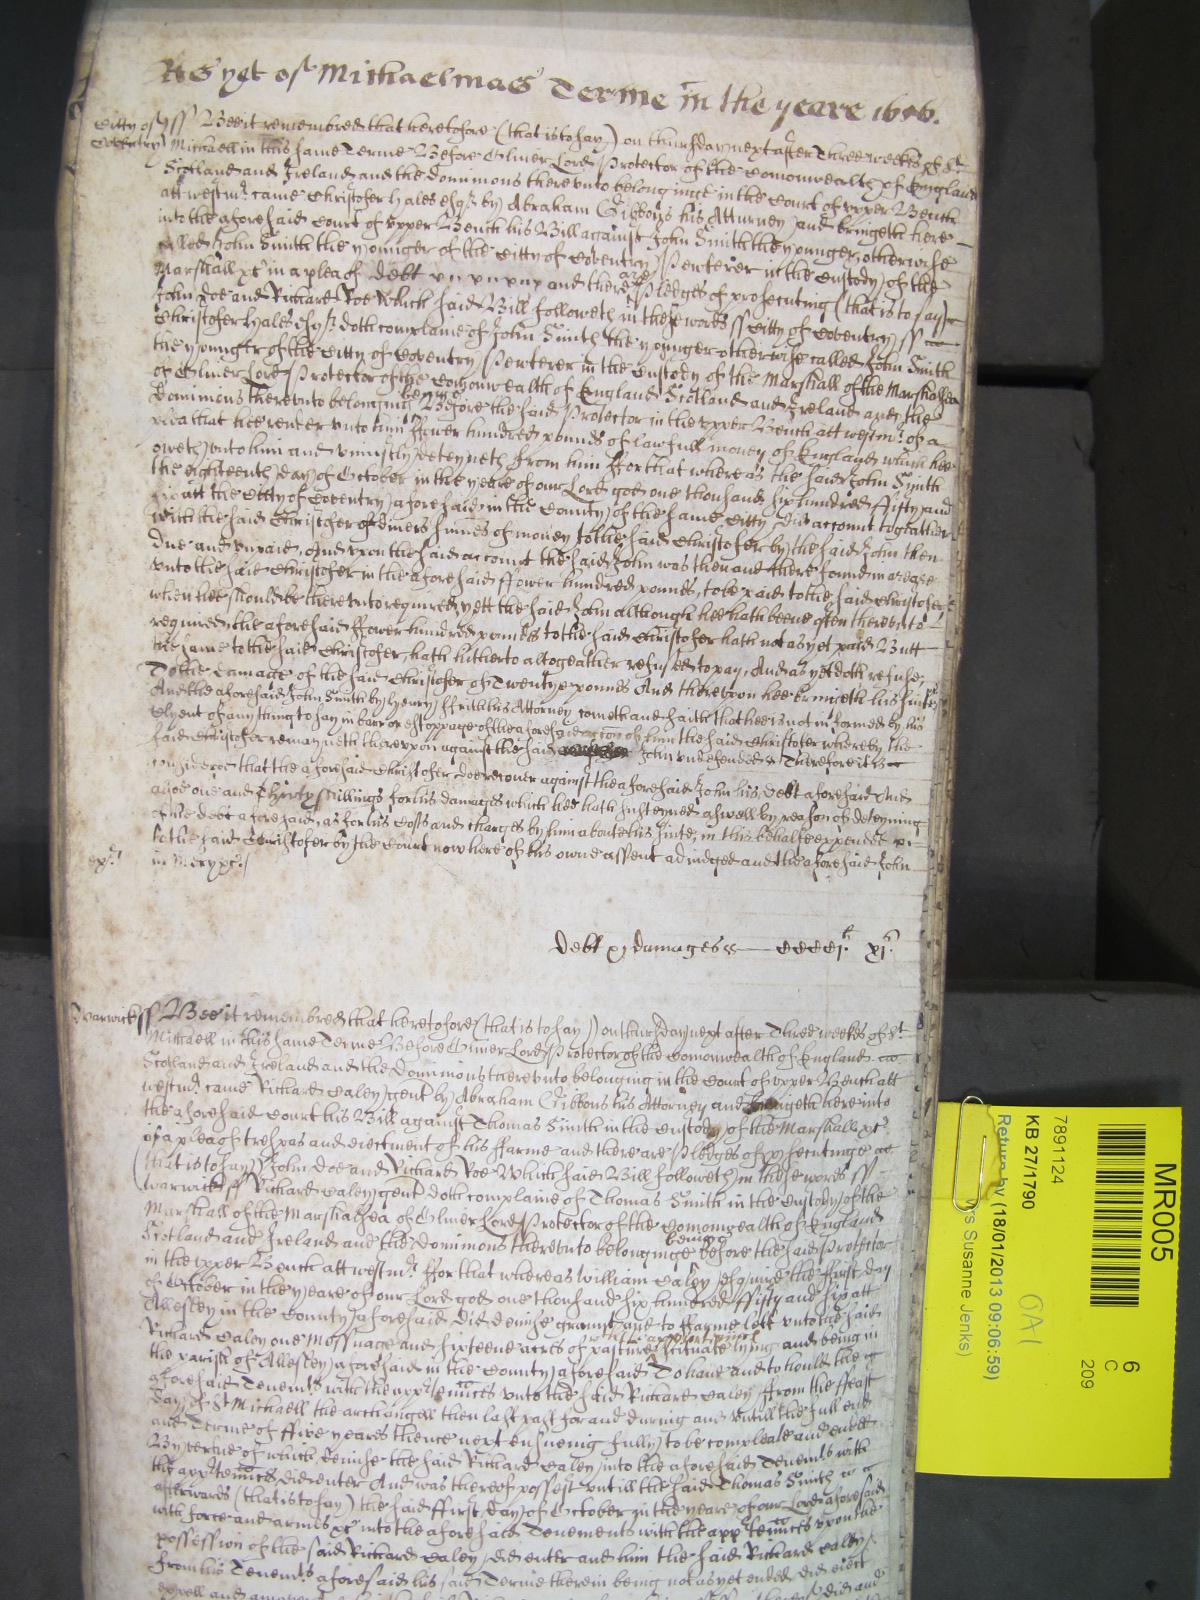 As yet of Michaelmas Terme in the yeare 1656.
Citty of Coventry ss Bee it remembred that heretofore (that is to say) on thursday next after Three weekes of St
Michaell in this same Terme Before Oliver Lord Protector of the Comonwealth of England
Scotland and Ireland and the dominions thereunto belonginge in the Court of upper Bench
att westmr. came Christofer Hales esqr. by Abraham Gibbons his Atturney and bringeth here
into the aforesaid Court of upper Bench his Bill against John Smith the younger, otherwise
called John Smith the younger of the Citty of Coventry Pewterer in the Custody of the
Marshall &c in a plea of debt and there are Pledges of prosecuting (that is to say)
John Doe and Richard Roe Which said Bill followeth in these words ss Citty of Coventry ss
Christofer Hales esqr. doth complaine of John Smith the younger otherwise called John Smith
the younger of the Citty of Coventry Pewterer in the Custody of the Marshall of the Marshalsea
of Oliver Lord Protector of the Comonwealth of England Scotland and Ireland and the
Dominions thereunto belonging being Before the said Protector in the upper Bench att westmr. of a
plea that hee render unto him ffower hundred pounds of lawfull money of England which hee
oweth unto him and uniustly deteyneth from him ffor that whereas the said John Smith
the eighteenth day of October in the yeare of our Lord god one thousand six hundred fifty and
six att the Citty of Coventry aforesaid in the County of the same Citty did account togeather
with the said Christofer of divers summes of money to the said Christofer by the said John then
due and unpaid, And upon the said account the said John was then and there found in arreare
unto the said Christofer in the aforesaid ffower hundred pounds, to be paid to the said Christofer
when hee should be thereunto required, yett the said John although hee hath beene often thereunto
required, the aforesaid ffower hundred pounds to the said Christofer hath not as yet paid Butt
the same to the said Christofer, hath hitherto altogeather refused to pay, And as yet doth refuse,
To the damage of the said Christofer of Twentye pounds And thereupon hee bringeth his suite,
And the aforesaid John Smith by Henry ffirth his Attorney cometh and saith that hee is not informed by his
Clyent of any thing to say in barr or estoppage of the aforesaid action of him the said Christofer whereby the
said Christofer remayneth thereupon against the said John undefended & Therefore it is
considered that the aforesaid Christofer doe recover against the aforesaid John his debt aforesaid And
alsoe one and Thirty shillings for his damages which hee hath susteyned aswell by reason of deteyning
of the debt aforesaid, as for his Costs and charges by him about his suite, in this behalfe expended
to the said Christofer by the Court now here of his owne assent adiudged and the aforesaid John
in Mercy &c.
Debt & damages CCCCj.li xj.s
Warwick ss Bee it remembred that heretofore (that is to say) on thursday next after Three weekes of St.
Michaell in this same Terme Before Oliver Lord Protector of the Comonwealth of England
Scotland and Ireland and the Dominions thereunto belonging in the Court of upper Bench att
westmr. came Richard Caley gent by Abraham Gibbons his Attorney and bringeth here into
the aforesaid Court his Bill against Thomas Smith in the Custody of the Marshall &c
of a plea of trespas and eiectment of his ffarme and there are Pledges of prosecutinge
(that is to say) John Doe and Richard Roe Which said Bill followeth in these words ss
Warwick ss Richard Caley gent doth complaine of Thomas Smith in the Custody of the
Marshall of the Marshalsea of Oliver Lord Protector of the Comonwealth of England
Scotland and Ireland and the dominions thereunto belonginge being before the said Protector
in the upper Bench att westmr. ffor that whereas William Caley esquire the ffirst day
of October in the yeare of our Lord god one thousand six hundred ffifty and six att
Allesley in the County aforesaid did demise graunt and to ffarme lett unto the said
Richard Caley one Messuage and sixteene acres of pasture with th'appurtenances scituate lying and being in
the parish of Allesley aforesaid in the County aforesaid To have and to hould the
aforesaid Tenements with the appurtennces unto the said Richard Caley ffrom the ffeast
day of St Michaell the archangell then last past for and during and untill the full end
and Terme of ffive yeares thence next ensueing fully to be compleate and ended
By vertue of which demise the said Richard Caley into the aforesaid Tenemts with
the appurtennces did enter And was thereof possest untill the said Thomas Smith
afterwards (that is to say) the said ffirst day of October in the yeare of our Lord aforesaid
with force and armes &c into the aforesaid Tenements with the appurtennces upon the
possession of the said Richard Caley did enter and him the said Richard Caley
from his Tenemts aforesaid his said Terme therein being not as yet ended did eiect
expell and
MR005
7891124
KB 27/1790
Return by (18/01/2013 09:06:59)
Susanne Jenks)
6
C
209